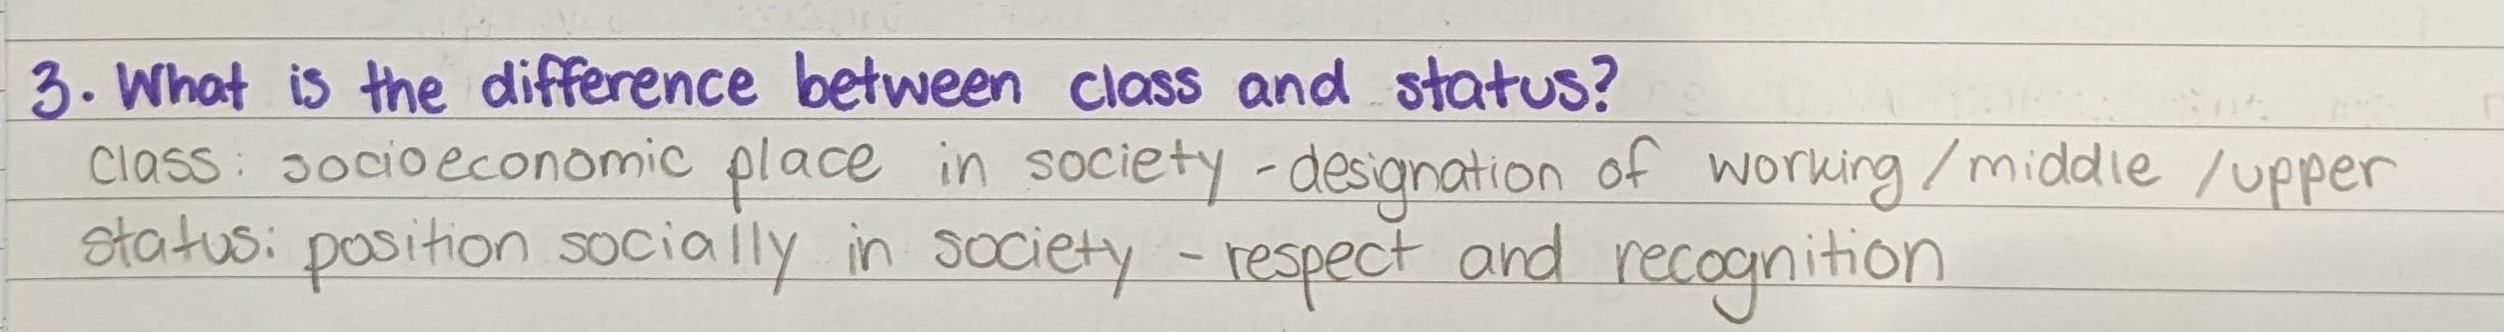 3. What is the difference between class and status?
class: socioeconomic place in society - designation of working / middle / upper
status: position socially in society - respect and recognition